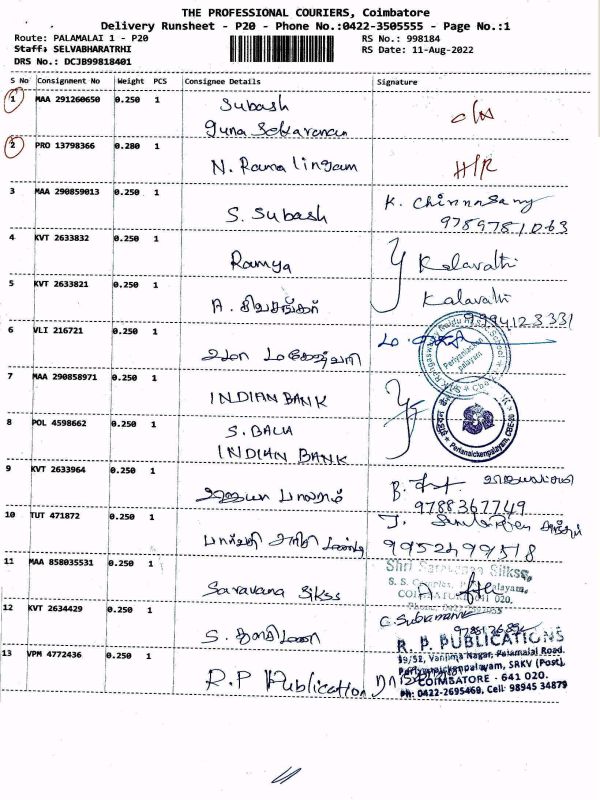 THE PROFESSIONAL COURIERS, Coimbatore
Delivery Runsheet - P20 - Phone No.:0422-3505555 - Page No.:1
Route: PALAMALAI 1 - P20 RS No.: 998184
Staff: SELVABHARATRHI RS Date: 11-Aug-2022
DRS No.: DCJB99818401
S No Consignment No Weight PCS Consignee Details Signature
1 MAA 291260650 0.250 1 Subash
guna
2 PRO 13798366 0.280 1 N. Ramalingam
3 MAA 290859013 0.250 1 S. Subash K. Chinnasamy
9789781063
4 KVT 2633832 0.250 1 Ramya Kalavathi
5 KVT 2633821 0.250 1 A. சிவசங்கர் Kalavathi
9994123331
6 VLI 216721 0.250 1 உமா மகேஷ்வரி
Periyanaickenpalayam
7 MAA 290858971 0.250 1 INDIAN BANK
8 POL 4598662 0.250 1 S. BALA
INDIAN BANK
Perianaickenpalayam, CBE-20
9 KVT 2633964 0.250 1 B.
9788367749
10 TUT 471872 0.250 1 J.
9952499518
11 MAA 858035531 0.250 1 Saravana Sikss
Shri Saravanas Silkss,
COIMBATORE - 641 020.
12 KVT 2634429 0.250 1 S. C. Subramani
13 VPM 4772436 0.250 1 R.P Publication
R. P. PUBLICATIONS
39/52, Vanjima Nagar, Palamalai Road.
Periyanaickenpalayam, SRKV (Post),
COIMBATORE - 641 020.
Ph: 0422-2695469, Cell: 98945 34879